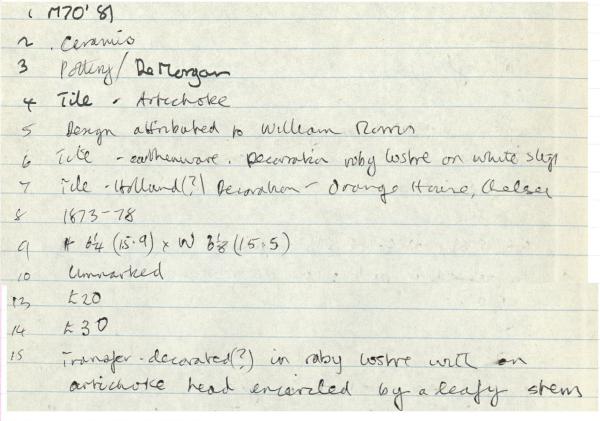 1 (M70'8)
2 . Ceramic
3 Pottery / De Morgan
4 Tile - Artichoke
5 Design attributed to William Morris
6 Tile - earthenware. Decoration ruby lustre on white slip
7 Tile - Holland(?) Decoration - Orange House, Chelsea
8 1873-78
9 H 6¼ (15.9) x W 6⅛ (15.5)
10 Unmarked
13 £20
14 £30
15 Transfer-decorated(?) in ruby lustre with an
artichoke head encircled by a leafy stem